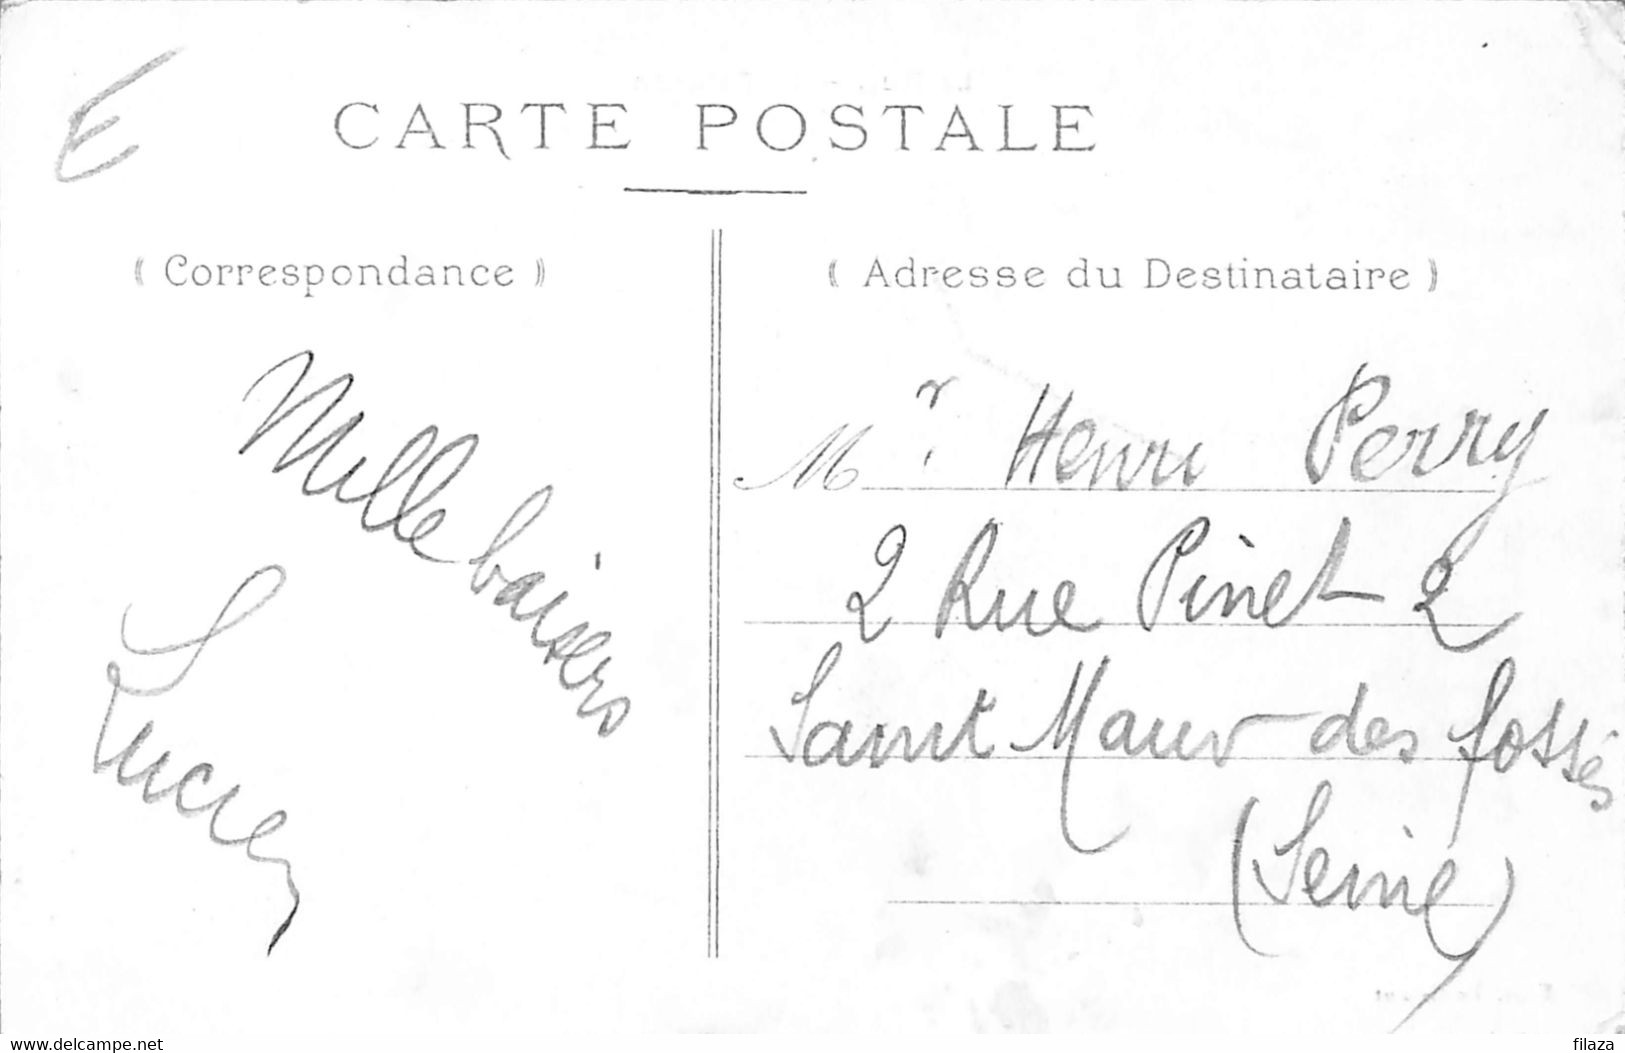 E
CARTE POSTALE
( Correspondance )
Mille baisers
Lucien
( Adresse du Destinataire )
Mr Henri Perry
2 Rue Pinet 2
Saint Maur des fossés
(Seine)
www.delcampe.net
filaza